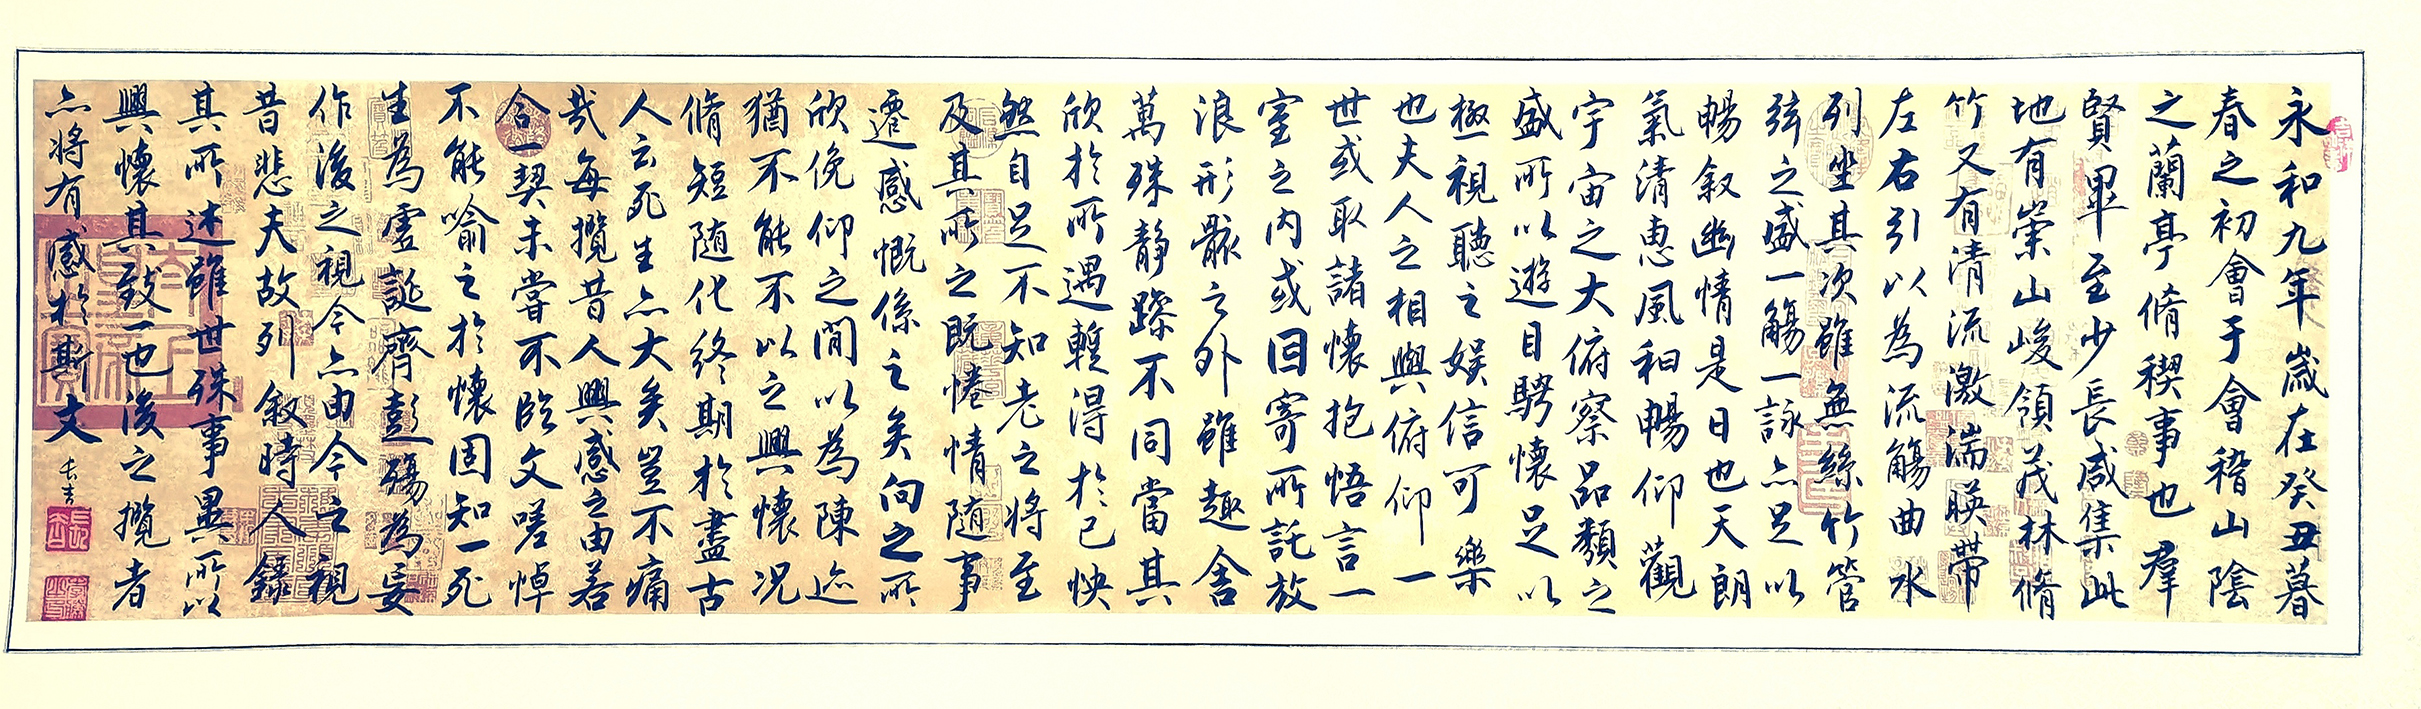 永和九年歲在癸丑暮
春之初會于會稽山陰
之蘭亭脩稧事也羣
賢畢至少長咸集此
地有崇山峻領茂林脩
竹又有清流激湍暎帶
左右引以為流觴曲水
列坐其次雖無絲竹管
弦之盛一觴一詠亦足以
暢敘幽情是日也天朗
氣清惠風和暢仰觀
宇宙之大俯察品類之
盛所以遊目騁懷足以
極視聽之娛信可樂
也夫人之相與俯仰一
世或取諸懷抱悟言一
室之內或因寄所託放
浪形骸之外雖趣舍
萬殊靜躁不同當其
欣於所遇暫得於己怏
然自足不知老之將至
及其所之既惓情隨事
遷感慨係之矣向之所
欣俛仰之間以為陳迹
猶不能不以之興懷況
脩短隨化終期於盡古
人云死生亦大矣豈不痛
哉每攬昔人興感之由若
合一契未嘗不臨文嗟悼
不能喻之於懷固知一死
生為虛誕齊彭殤為妄
作後之視今亦由今之視
昔悲夫故列敘時人錄
其所述雖世殊事異所以
興懷其致一也後之攬者
亦將有感於斯文
長吉